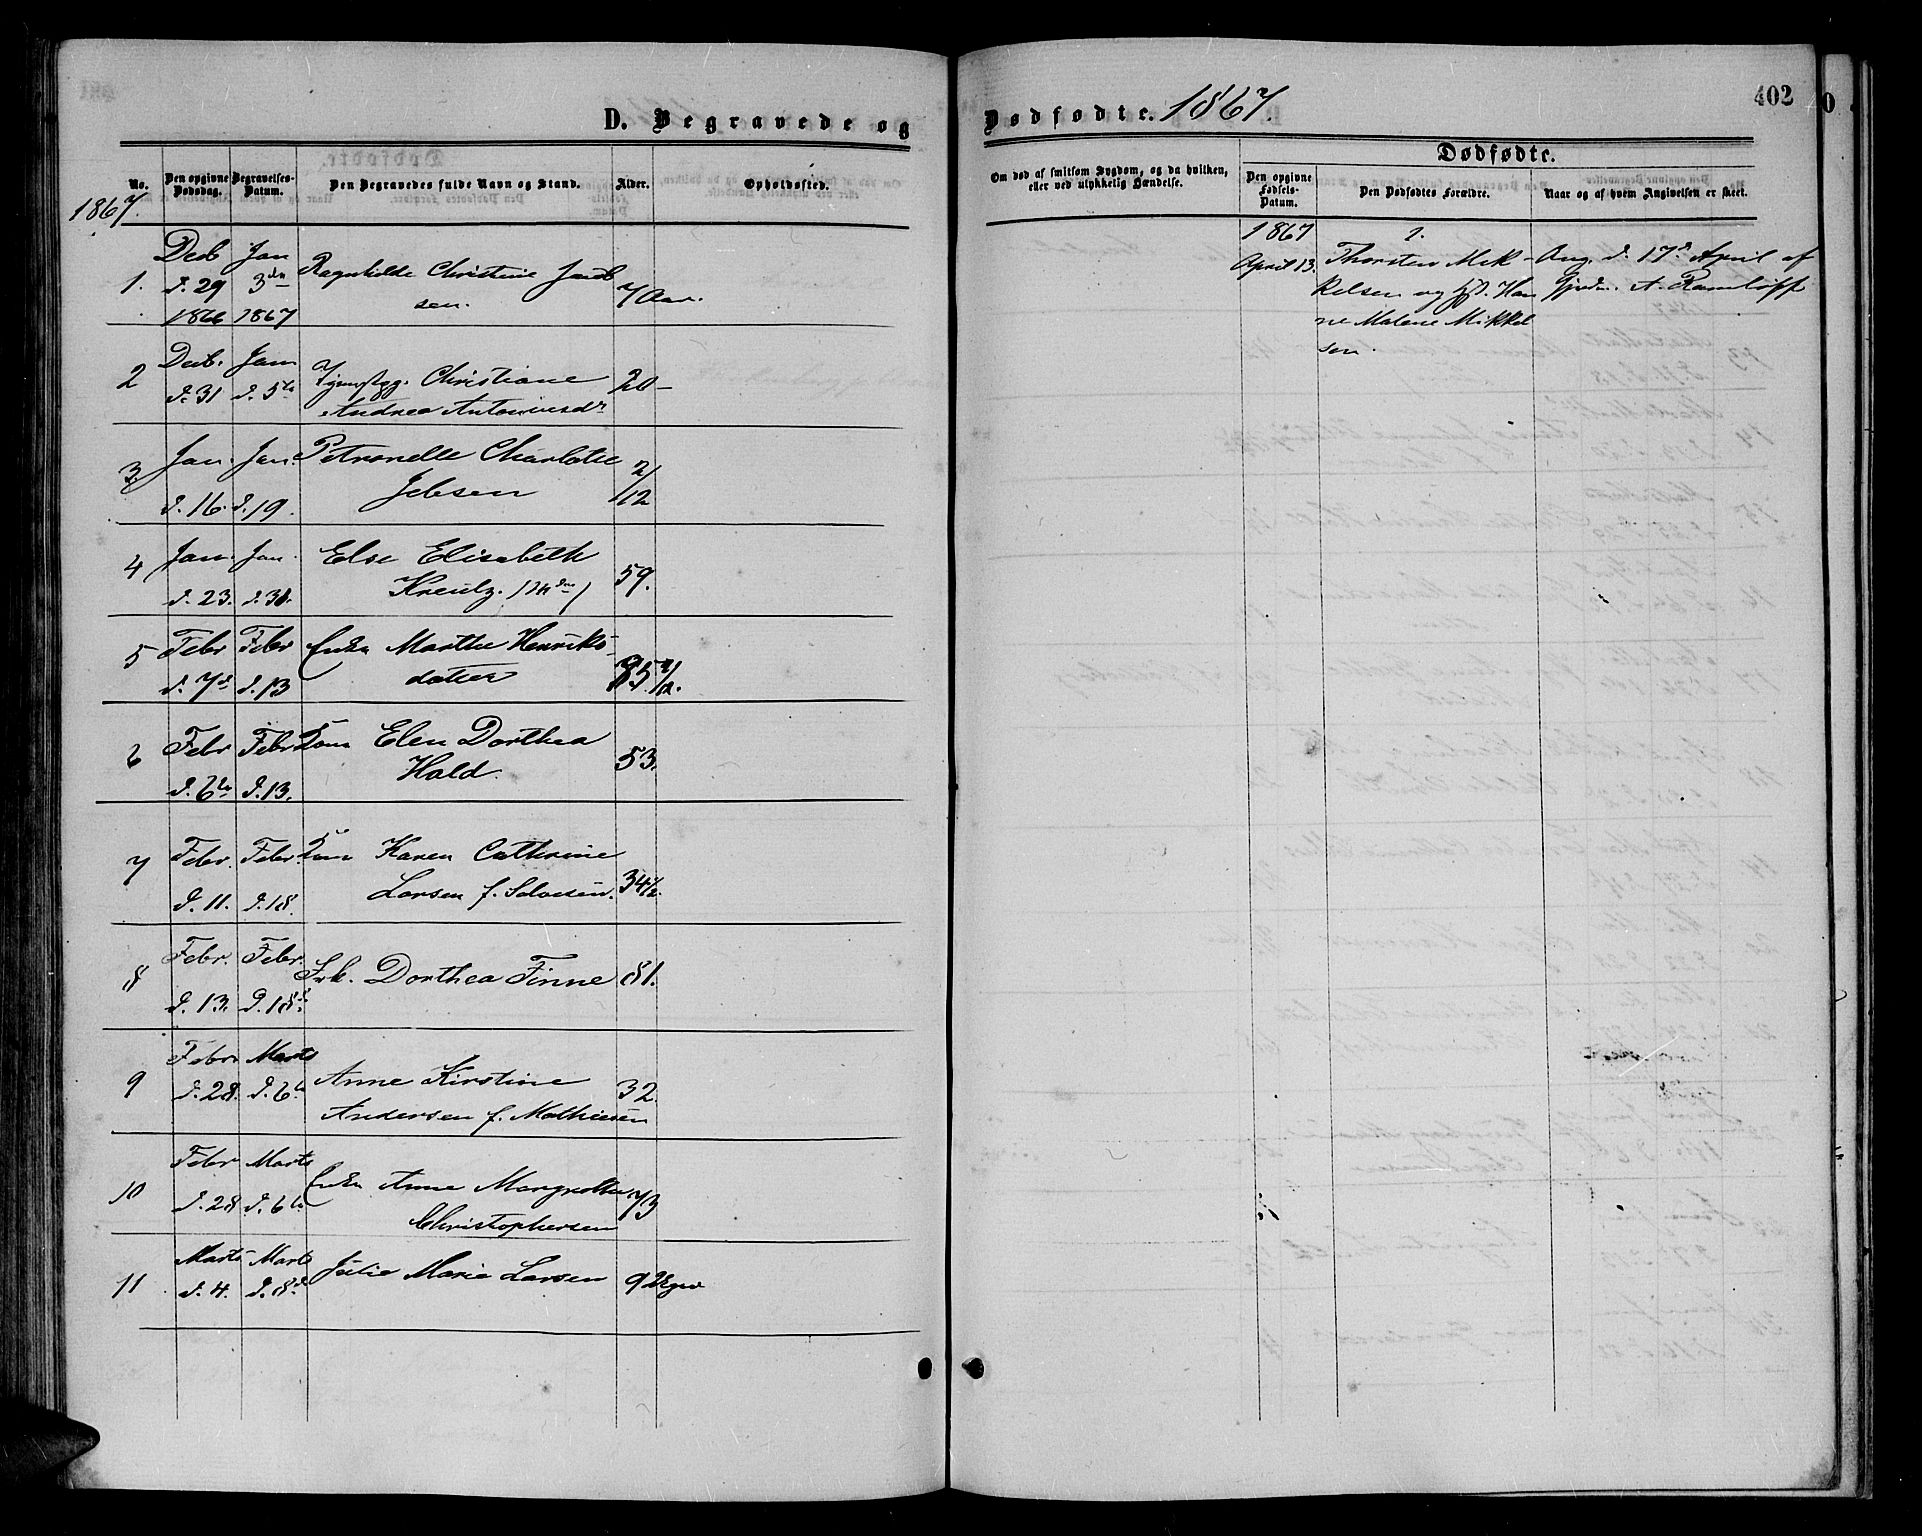 402
D. Begravede og Dødfødte. 1867.
No.
Den opgivne Dødsdag.
Begravelses-Datum.
Den Begravedes fulde Navn og Stand.
Alder.
Opholdssted.
Om død af smitsom Sygdom, og da hvilken, eller ved ulykkelig Hændelse.
Dødfødte.
Den opgivne Fødsels-Datum.
Den Dødfødtes Forældre.
Naar og af hvem Angivelsen er skeet.
1867.
1. Decb d. 29 1866 Jan 3die 1867 Ragnhilde Christine Jacobsen. 7 Aar.
2 Decb. d. 31 Jan d. 5te Christiane Andrea Antoniusdr 20-
3. Jan. d. 16. Jan. d. 19. Petronelle Charlotte Jebsen 2/12
4 Jan. d. 23. Jan. Else Elisabeth 59.
5 Febr d. 7d Febr d. 13 Enke Marthe Henriks-
datter
6 Febr d. 6te Febr d. 13. Kone Elen Dorthea Hald. 53.
7 Febr. d. 11. Febr. d. 18. Kone Karen Cathrine Larsen f. Salvesen. 34½.
8 Febr. d. 13. Febr. d. 18d Frk. Dorthea Finne 81.
9 Febr d. 28. Marts d. 6te Anne Kirstine Andersen f. Mathiesen 32.
10 Febr d. 28 Marts d. 6te Enke Anne Margrethe Christophersen 73
11 Marts d. 4. Marts d. 8d Julie Marie Larsen 9 Uger
1867
April 13.
1.
Thorsten Mik-
kelsen og Han
ne Malene Mikkel
sen.
Ang. d. 17d April af